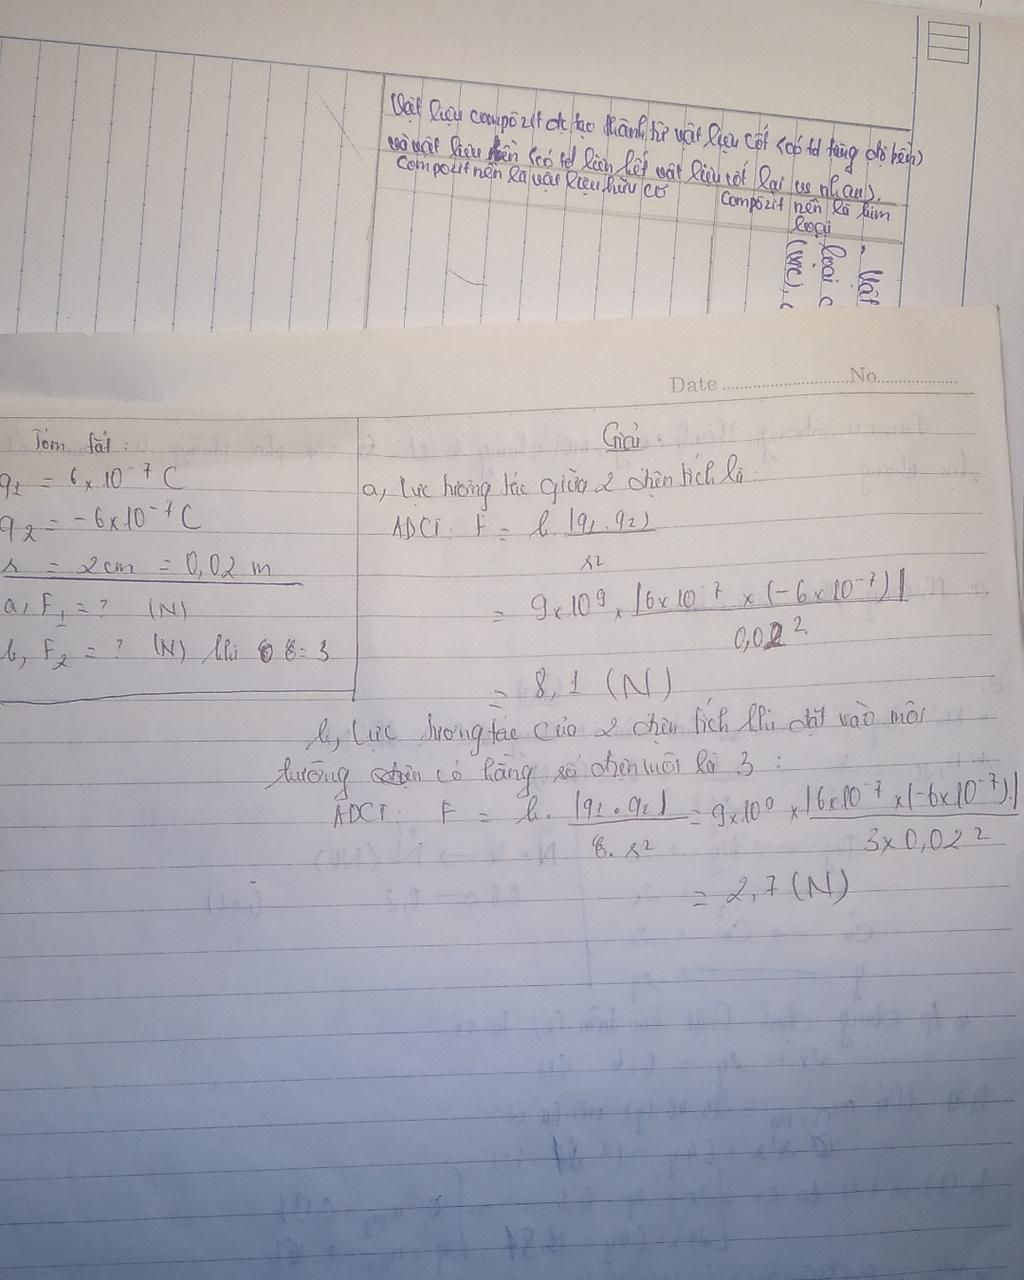 Vật liệu compozit đc tạo thành từ vật liệu cốt (có td tăng độ bền)
và vật liệu nền (có td liên kết vật liệu cốt lại vs nhau).
Compozit nền là vật liệu hữu cơ
Compozit nền là kim
loại
Vật
loại c
(WC),
Date No.
Tóm tắt:
q₁ = 6x10⁻⁷ C
q₂ = -6x10⁻⁷ C
r = 2cm = 0,02 m
a, F₁ = ? (N)
b, F₂ = ? (N) khi ε = 3
Giải:
a, Lực tương tác giữa 2 điện tích là:
ADCT: F = k. |q₁.q₂|
r²
= 9x10⁹ x |6x10⁻⁷ x (-6x10⁻⁷)|
0,02²
= 8,1 (N)
b, Lực tương tác của 2 điện tích khi đặt vào môi
trường có hằng số điện môi là 3:
ADCT: F = k. |q₁.q₂| = 9x10⁹ x |6x10⁻⁷ x (-6x10⁻⁷)|
ε. r² 3x0,02²
= 2,7 (N)